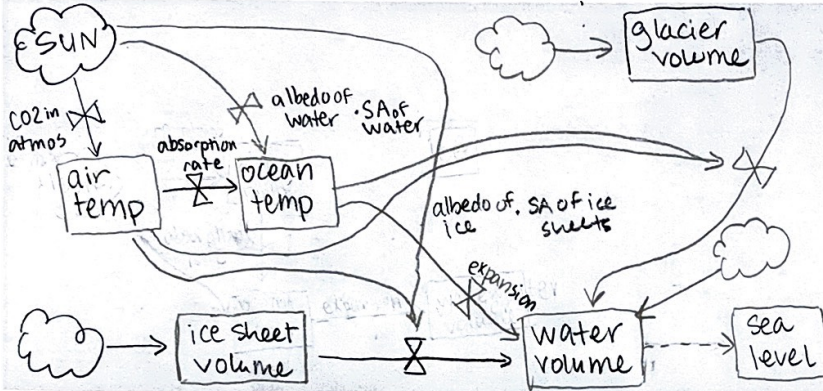 SUN
glacier
volume
CO2 in
atmos
albedo of
water · SA of
water
absorption
rate
air
temp
ocean
temp
albedo of · SA of ice
ice sheets
expansion
ice sheet
volume
water
volume
sea
level